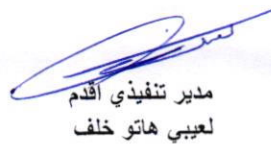 مدير تنفيذي اقدم
لعيبي هاتو خلف